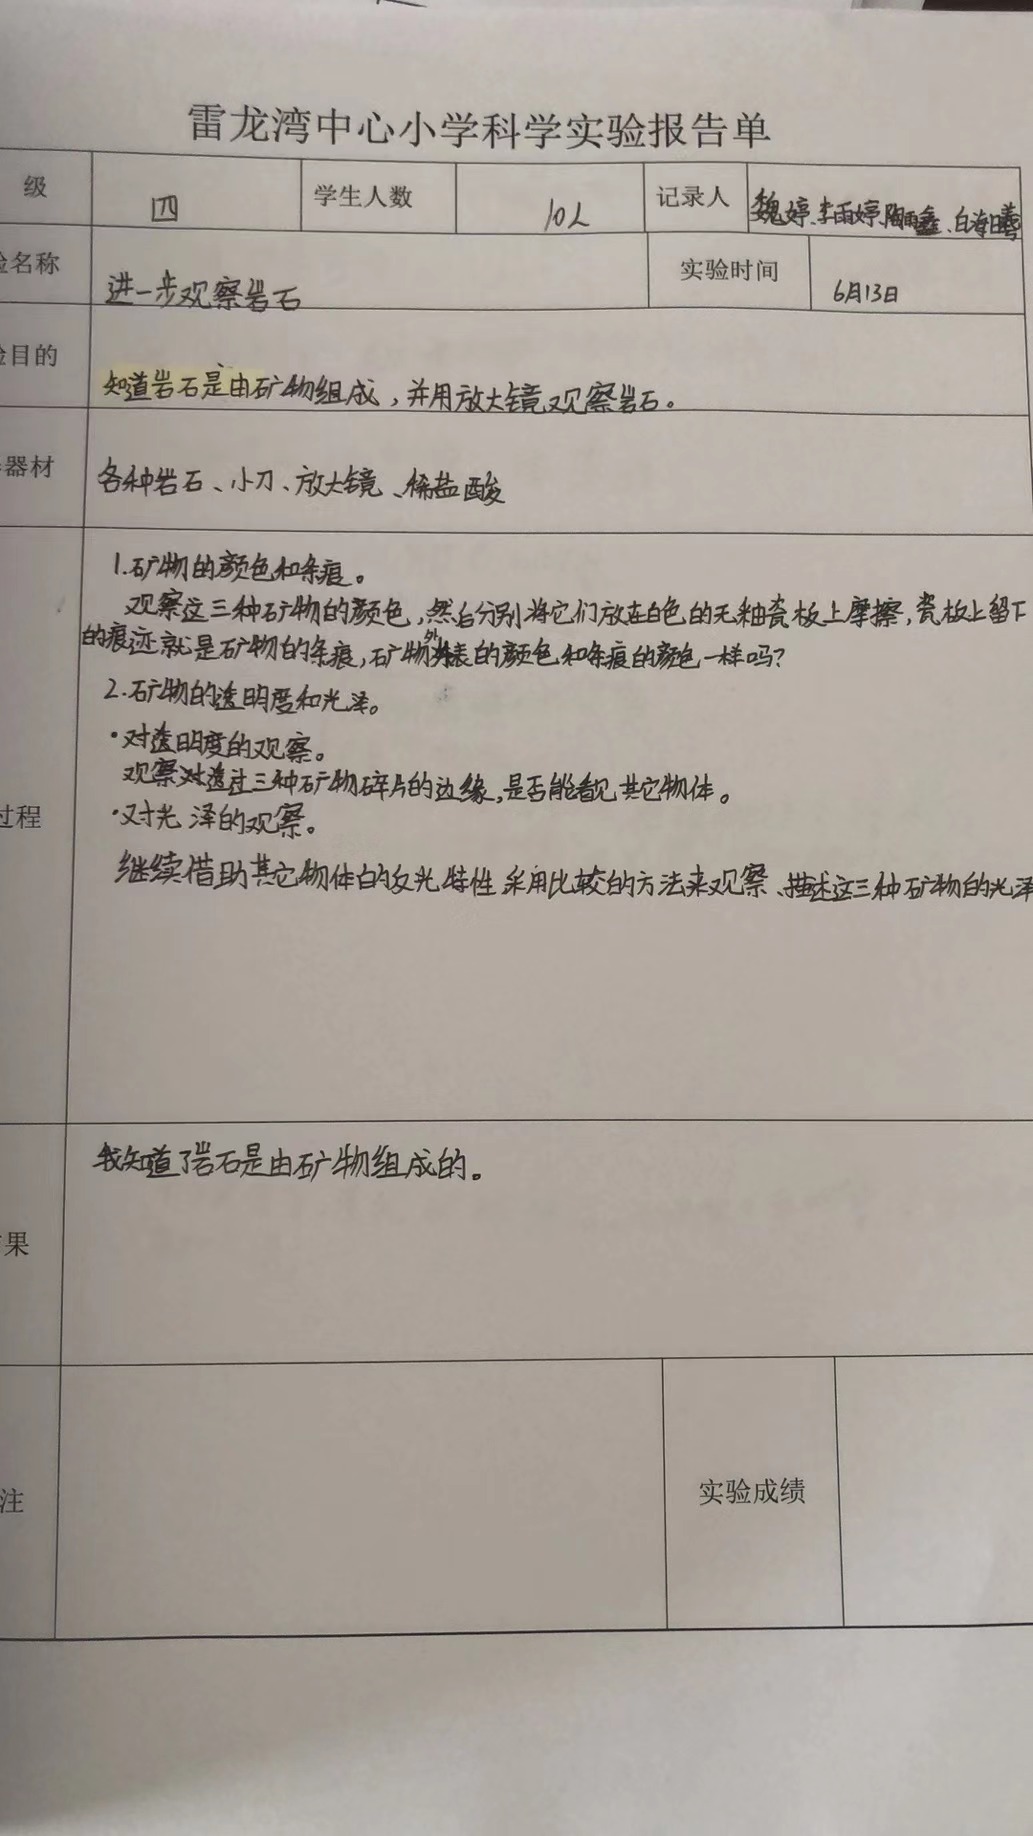 雷龙湾中心小学科学实验报告单
级 四 学生人数 10人 记录人 魏婷、李雨婷、陶雨鑫、白海曦
验名称 进一步观察岩石 实验时间 6月13日
验目的 知道岩石是由矿物组成，并用放大镜观察岩石。
器材 各种岩石、小刀、放大镜、稀盐酸
1.矿物的颜色和条痕。
观察这三种矿物的颜色，然后分别将它们放在白色的无釉瓷板上摩擦，瓷板上留下
的痕迹就是矿物的条痕，矿物外表的颜色和条痕的颜色一样吗？
2.矿物的透明度和光泽。
·对透明度的观察。
观察透过三种矿物碎片的边缘，是否能看见其它物体。
过程
·对光泽的观察。
继续借助其它物体的反光特性采用比较的方法来观察、描述这三种矿物的光泽
我知道了岩石是由矿物组成的。
果
注 实验成绩